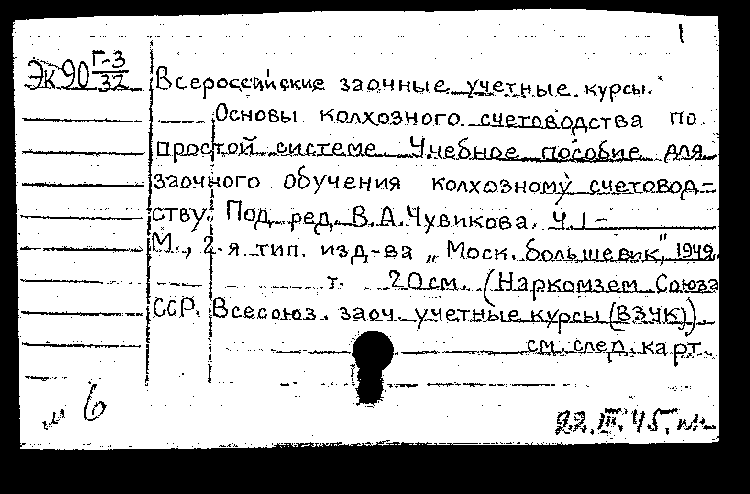 1
Эк90 Г-3/32
Всероссийские заочные учетные курсы.
Основы колхозного счетоводства по
простой системе. Учебное пособие для
заочного обучения колхозному счетовод-
ству. Под ред. В.А.Чувикова. Ч.1-
М., 2-я тип. изд-ва „Моск. большевик",
т. 20см. (Наркомзем Союза
ССР. Всесоюз. заоч. учетные курсы (ВЗУК)).
см. след. карт.
6
22.III.45.